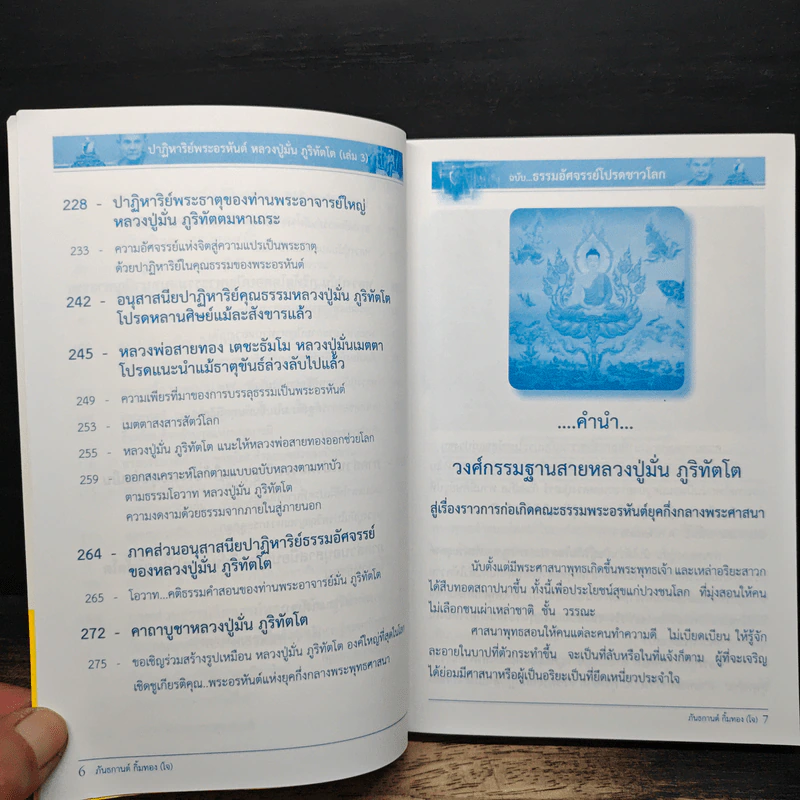 ปาฏิหาริย์พระอรหันต์ หลวงปู่มั่น ภูริทัตโต (เล่ม 3)
228 - ปาฏิหาริย์พระธาตุของท่านพระอาจารย์ใหญ่
หลวงปู่มั่น ภูริทัตตมหาเถระ
233 - ความอัศจรรย์แห่งจิตสู่ความแปรเป็นพระธาตุ
ด้วยปาฏิหาริย์ในคุณธรรมของพระอรหันต์
242 - อนุสาสนียปาฏิหาริย์คุณธรรมหลวงปู่มั่น ภูริทัตโต
โปรดหลานศิษย์แม้ละสังขารแล้ว
245 - หลวงพ่อสายทอง เตชะธัมโม หลวงปู่มั่นเมตตา
โปรดแนะนำแม้ธาตุขันธ์ล่วงลับไปแล้ว
249 - ความเพียรที่มาของการบรรลุธรรมเป็นพระอรหันต์
253 - เมตตาสงสารสัตว์โลก
255 - หลวงปู่มั่น ภูริทัตโต แนะให้หลวงพ่อสายทองออกช่วยโลก
259 - ออกสงเคราะห์โลกตามแบบฉบับหลวงตามหาบัว
ตามธรรมโอวาท หลวงปู่มั่น ภูริทัตโต
ความงดงามด้วยธรรมจากภายในสู่ภายนอก
264 - ภาคส่วนอนุสาสนียปาฏิหาริย์ธรรมอัศจรรย์
ของหลวงปู่มั่น ภูริทัตโต
265 - โอวาท...คติธรรมคำสอนของท่านพระอาจารย์มั่น ภูริทัตโต
272 - คาถาบูชาหลวงปู่มั่น ภูริทัตโต
275 - ขอเชิญร่วมสร้างรูปเหมือน หลวงปู่มั่น ภูริทัตโต องค์ใหญ่ที่สุดในโลก
เชิดชูเกียรติคุณ..พระอรหันต์แห่งยุคกึ่งกลางพระพุทธศาสนา
6 ภันธกานต์ กิ้มทอง (โจ)
ฉบับ...ธรรมอัศจรรย์โปรดชาวโลก
....คำนำ...
วงศ์กรรมฐานสายหลวงปู่มั่น ภูริทัตโต
สู่เรื่องราวการก่อเกิดคณะธรรมพระอรหันต์ยุคกึ่งกลางพระศาสนา
นับตั้งแต่มีพระศาสนาพุทธเกิดขึ้นพระพุทธเจ้า และเหล่าอริยะสาวก
ได้สืบทอดสถาปนาขึ้น ทั้งนี้เพื่อประโยชน์สุขแก่ปวงชนโลก ที่มุ่งสอนให้คน
ไม่เลือกชนเผ่าเหล่าชาติ ชั้น วรรณะ
ศาสนาพุทธสอนให้คนแต่ละคนทำความดี ไม่เบียดเบียน ให้รู้จัก
ละอายในบาปที่ตัวกระทำขึ้น จะเป็นที่ลับหรือในที่แจ้งก็ตาม ผู้ที่จะเจริญ
ได้ย่อมมีศาสนาหรือผู้เป็นอริยะเป็นที่ยึดเหนี่ยวประจำใจ
ภันธกานต์ กิ้มทอง (โจ) 7